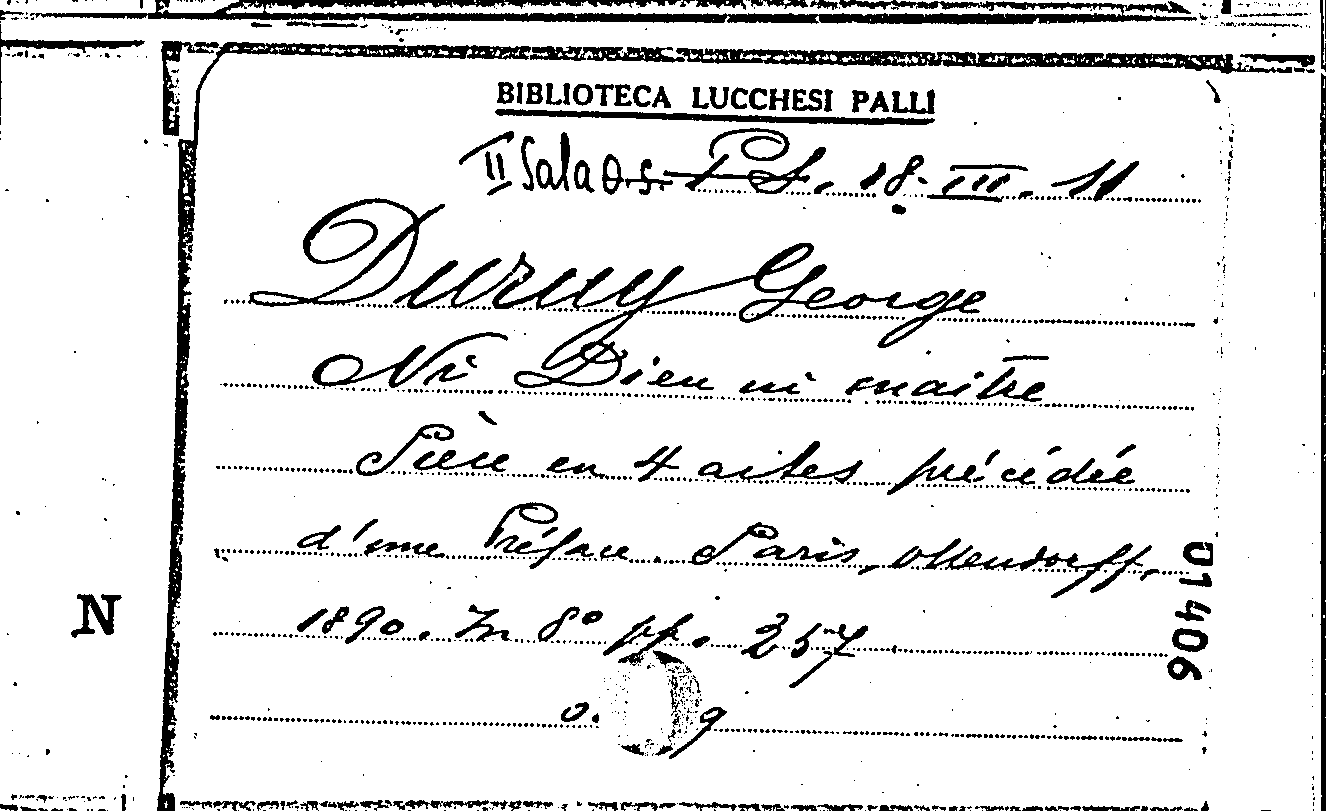 BIBLIOTECA LUCCHESI PALLI
II Sala O.s. P S. 18. III. 11
Duruy George
Ni Dieu ni maitre
Pièce en 4 actes précédée
d'une Préface. Paris, Ollendorff,
1890. In 8° pp. 257
o. g
01406
N